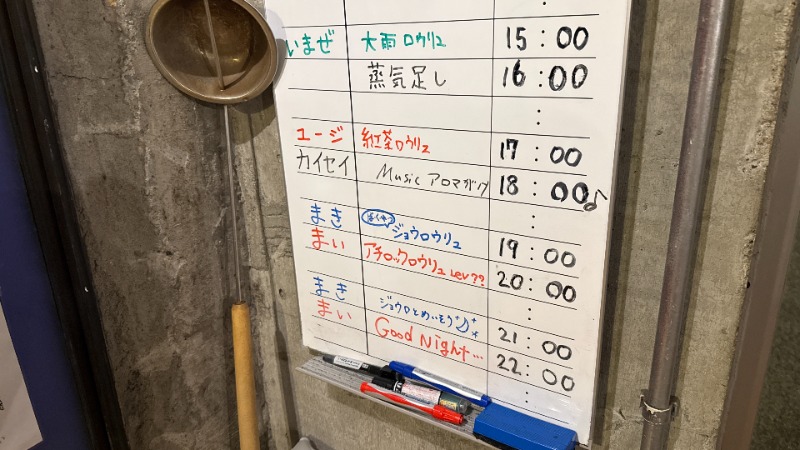 いまぜ 大雨ロウリュ 15:00
蒸気足し 16:00
ユージ 紅茶ロウリュ 17:00
カイセイ Music アロマガワ 18:00♪
まき ジョウロウリュ 19:00
まい アチロックロウリュ Lev?? 20:00
まき ジョウロとめいそう 21:00
まい Good Night… 22:00